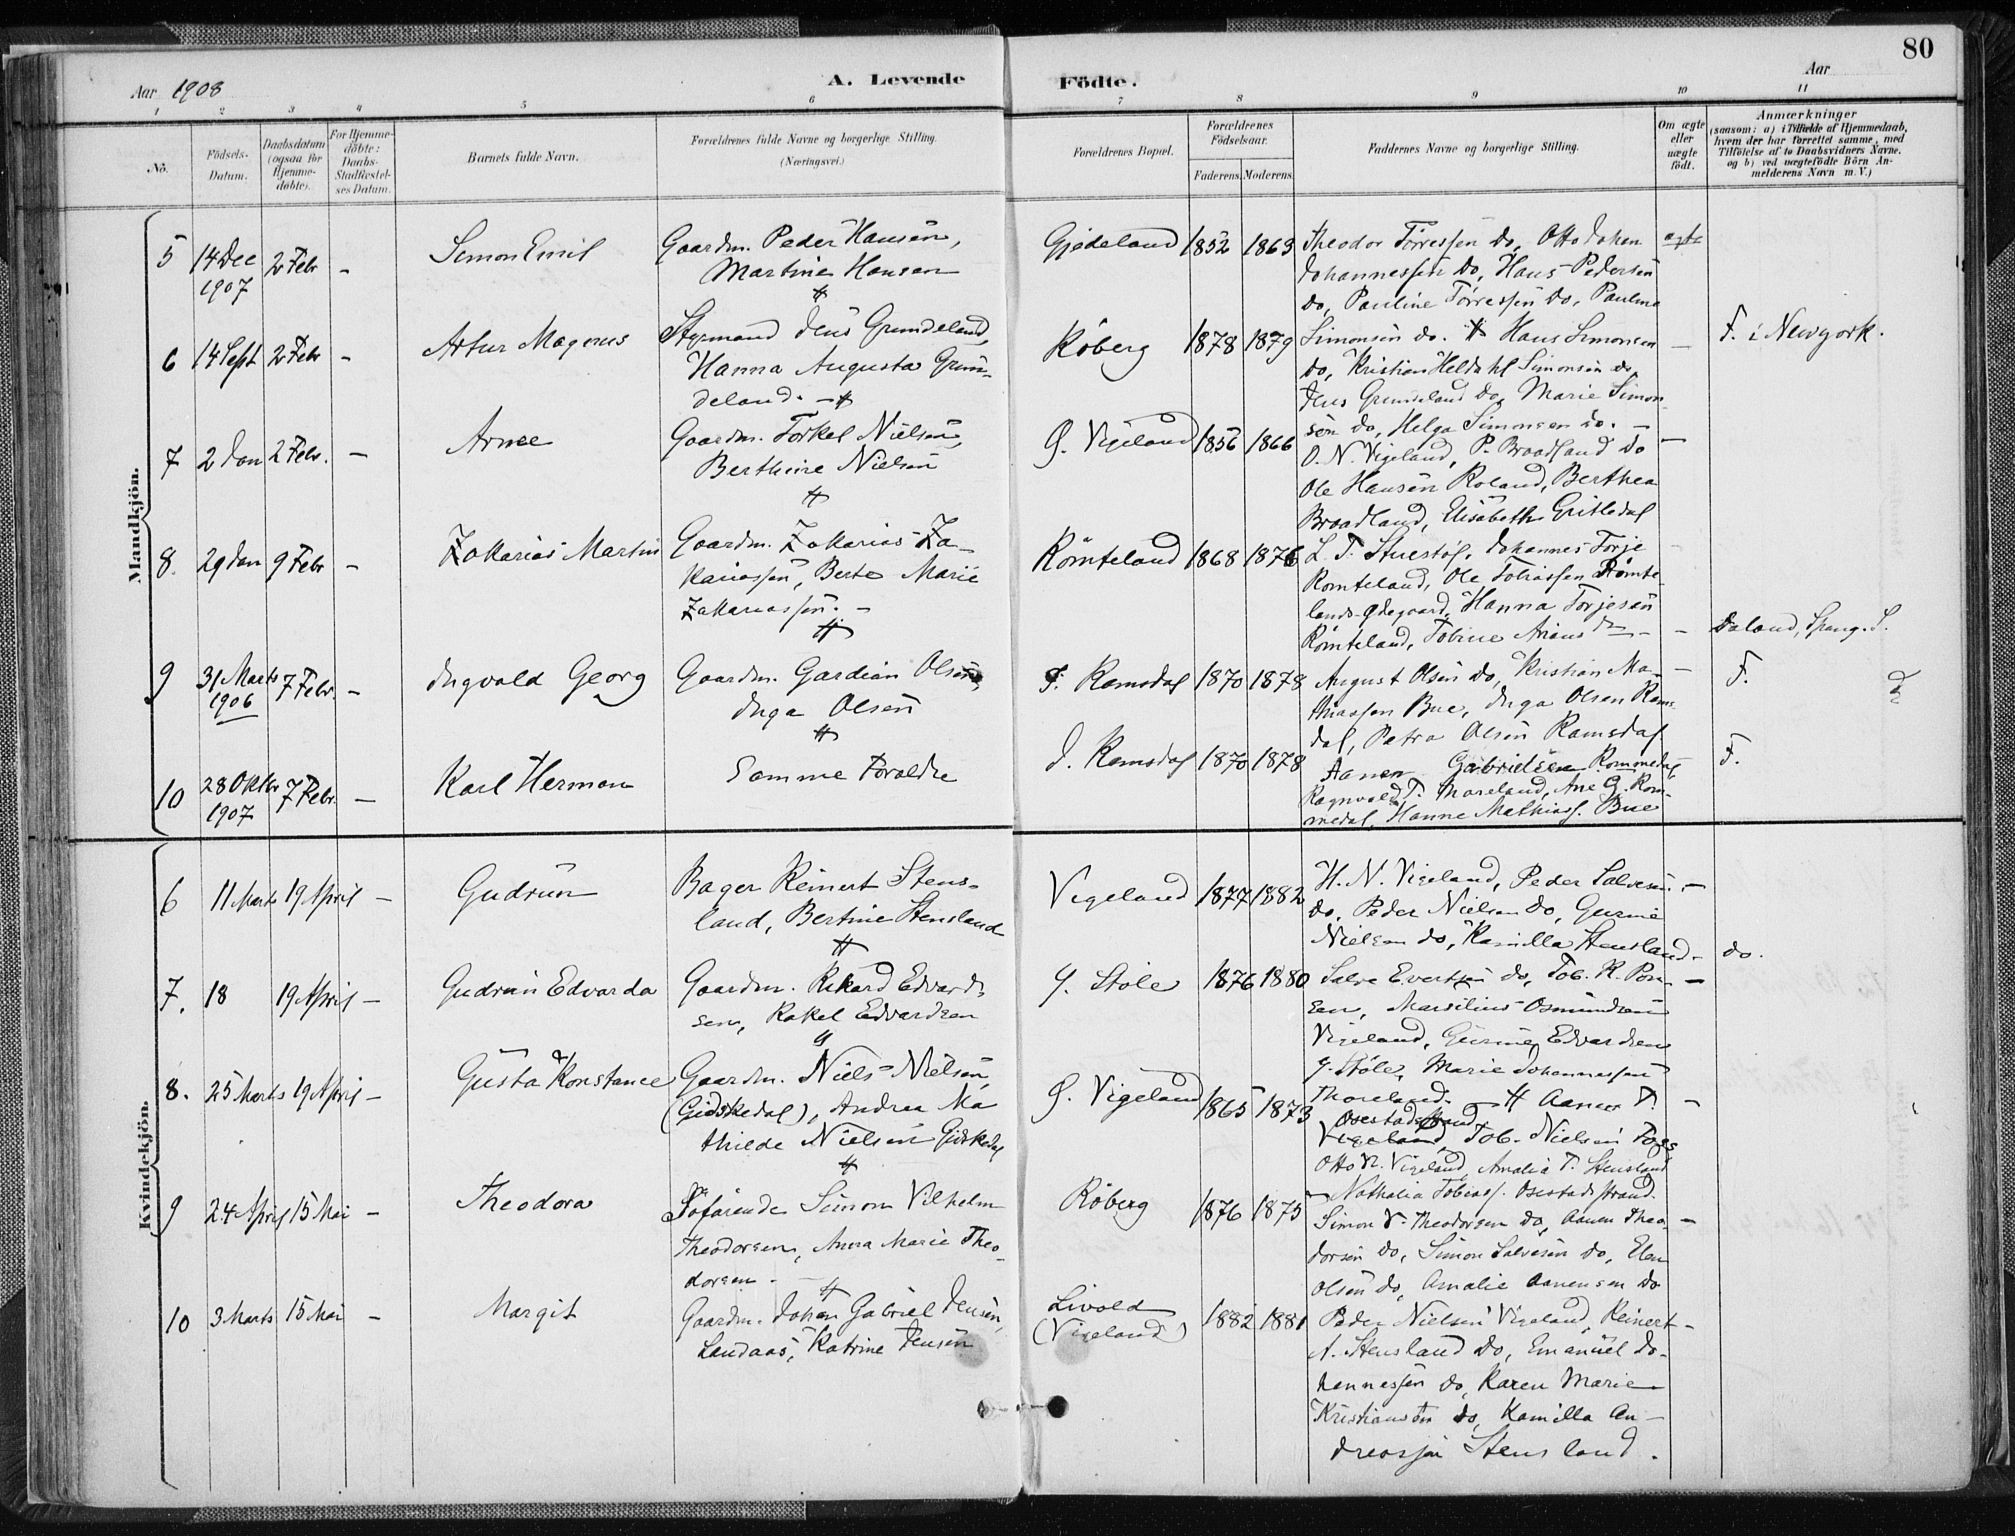 80
Aar 1908
A. Levende Födte.
Aar
1 2 3 4 5 6 7 8 9 10 11
No.
Födsels-Datum.
Daabsdatum (ogsaa for Hjemme-döbte).
For Hjemme-döbte: Daabs-Stadfæstel-ses Datum.
Barnets fulde Navn.
Forældrenes fulde Navne og borgerlige Stilling.
(Næringsvei.)
Forældrenes Bopæl.
Forældrenes Födselsaar.
Faderens. Moderens.
Faddernes Navne og borgerlige Stilling.
Om ægte eller uægte födt.
Anmærkninger
(saasom: a) i Tilfælde af Hjemmedaab,
hvem der har forrettet samme, med
Tilföielse af to Daabsvidners Navne.
og b) ved uægtefödte Börn An-
melderens Navn m. V.)
Mandkjön.
5 14 Dec 1907 2 Febr - Simon Emil
Gaardm. Peder Hansen,
Martine Hansen
Gjedeland 1852 1863
Theodor Tørressen do, Otto Johan
Johannessen do, Hans Pedersen
do, Pauline Tørressen do, Pauline
Simonsen do.
ægte
6 14 Sept 2 Febr - Artur Magnus
Styrmand Jens Grundeland,
Hanna Augusta Grun-
deland. -
Røberg 1878 1879
Hans Simonsen
do, Kristian Heldahl Simonsen do,
Jens Grundeland do, Marie Simon-
sen do, Helga Simonsen do. -
F. i Newyork.
7 2 Jan 2 Febr. - Arne
Gaardm. Torkel Nielsen,
Berthine Nielsen
G. Vigeland 1856 1866
O. N. Vigeland, P. Braadland do
Ole Hansen Roland, Berthea
Braadland, Elisabeth
8. 29 Jan 9 Febr - Zakarias Martin
Gaardm. Zakarias Za-
kariassen, Berte Marie
Zakariassen. -
Rømteland 1868 1876
Johannes Torje
Romteland, Ole Tobiassen Rømte-
land, Hanna Torjesen
Rømteland, Tobine
Daland, Spang. S.
9 31 Marts 1906 7 Febr. - Ingvald Georg
Gaardm. Gardian Olsen,
Inga Olsen
Ramsdal 1870 1878
August Olsen do, Kristian Ma-
thiassen Bue, Inga Olsen Rams-
dal, Petra Olsen Ramsdal
F.
10 28 Oktbr 1907 7 Febr. - Karl Herman
Samme Forældre
Ramsdal 1870 1878
Aanen Gabrielsen Rommedal,
Ragnvald T. Moreland, Ane G. Rom-
medal, Hanne Mathiass. Bue
F.
Kvindekjön.
6 11 Marts 19 April - Gudrun
Bager Reinert Stens-
land, Bertine Stensland
Vigeland 1877 1882
H. N. Vigeland, Peder Salvesen
do, Peder Nielsen do, Gurine
Nielsen do, Kamilla Stensland -
do.
7. 18 19 April - Gudrun Edvarda
Gaardm. Rikard Edvard-
sen, Rakel Edvardsen
Y. Støle 1876 1880
Salve Evertsen do, Tob. K.
Marselius Osmundsen
Vigeland, Gurine Edvardsen
Y. Støle, Marie Johannessen
Thoreland. -
8. 25 Marts 19 April - Gusta Konstance
Gaardm. Niels Nielsen,
(Gidskedal), Andrea Ma
thilde Nielsen Gidskedal
G. Vigeland 1865 1873
Aanen T.
Osestadstrand
Vigeland, Tob. Nielsen
Otto N. Vigeland, Amalia T. Stensland
Nathalia Tobiass. Osestadstrand.
9 24 April 15 Mai - Theodora
Søfarende Simon Vilhelm
Theodorsen, Anna Marie Theo-
dorsen -
Røberg 1876 1875
Simon V. Theodorsen do, Aanen Theo-
dorsen do, Simon Salvesen do, Elen
Olsen do, Amalie Aanensen do
10 3 Marts 15 Mai - Margit
Gaardm. Johan Gabriel Jensen,
Landaas, Katrine Jensen
Livold
(Vigeland) 1882 1881
Peder Nielsen Vigeland, Reinert
A. Stensland do, Emanuel Jo-
hannessen do, Karen Marie
Kristiansen do, Kamilla An-
dreassen Stensland.